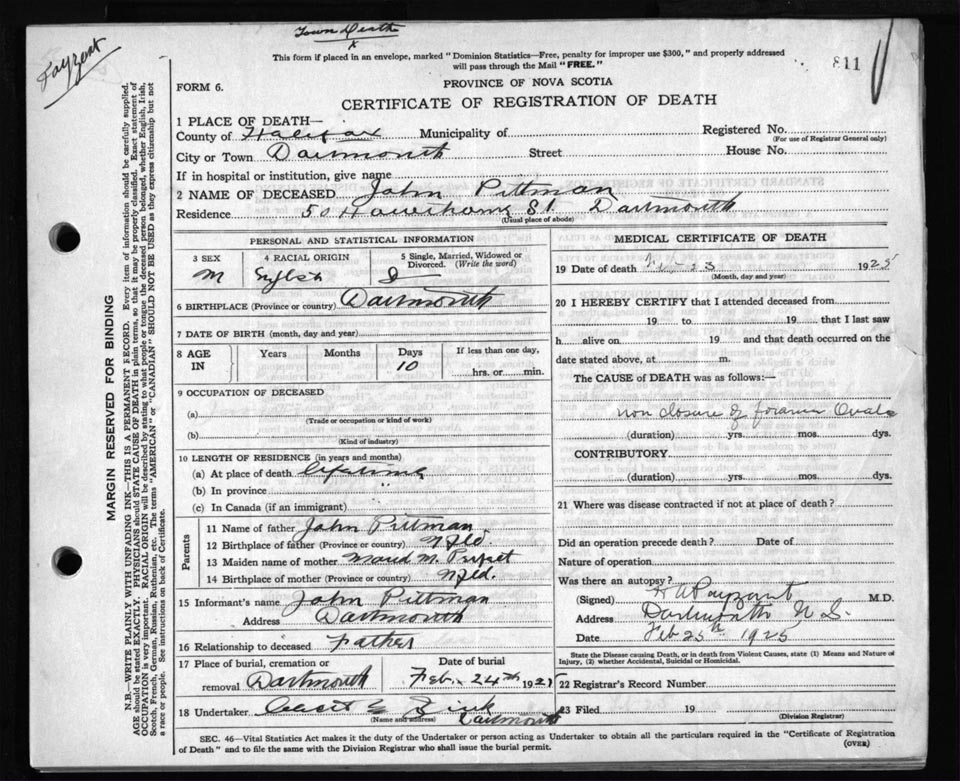 Town Death
x
Payzant
This form if placed in an envelope, marked "Dominion Statistics—Free, penalty for improper use $300," and properly addressed
will pass through the Mail "FREE."
811
FORM 6.
PROVINCE OF NOVA SCOTIA
CERTIFICATE OF REGISTRATION OF DEATH
1 PLACE OF DEATH—
County of Halifax Municipality of Registered No.
(For use of Registrar General only)
City or Town Dartmouth Street House No.
If in hospital or institution, give name
2 NAME OF DECEASED John Pittman
Residence 50 St Dartmouth
(Usual place of abode)
PERSONAL AND STATISTICAL INFORMATION
3 SEX 4 RACIAL ORIGIN 5 Single, Married, Widowed or Divorced. (Write the word)
M English S
6 BIRTHPLACE (Province or country) Dartmouth
7 DATE OF BIRTH (month, day and year)
8 AGE IN Years Months Days If less than one day,
10 hrs. or min.
9 OCCUPATION OF DECEASED
(a)
(Trade or occupation or kind of work)
(b)
(Kind of industry)
10 LENGTH OF RESIDENCE (in years and months)
(a) At place of death lifetime
(b) In province "
(c) In Canada (if an immigrant)
Parents
11 Name of father John Pittman
12 Birthplace of father (Province or country) Nfld.
13 Maiden name of mother Maud M.
14 Birthplace of mother (Province or country) Nfld.
15 Informant's name John Pittman
Address Dartmouth
16 Relationship to deceased Father
17 Place of burial, cremation or Date of burial
removal Dartmouth Feb. 24th 192
18 Undertaker Zink
(Name and address) Dartmouth
MEDICAL CERTIFICATE OF DEATH
19 Date of death 23 1925
(Month, day and year)
20 I HEREBY CERTIFY that I attended deceased from
19 to 19 that I last saw
h alive on 19 and that death occurred on the
date stated above, at m.
The CAUSE of DEATH was as follows:—
non closure of foramen Ovale
(duration) yrs. mos. dys.
CONTRIBUTORY
(duration) yrs. mos. dys.
21 Where was disease contracted if not at place of death?
Did an operation precede death? Date of
Nature of operation
Was there an autopsy?
(Signed) H A Payzant M.D.
Address Dartmouth N.S.
Date Feb 25th 1925
State the Disease causing Death, or in death from Violent Causes, state (1) Means and Nature of
Injury, (2) whether Accidental, Suicidal or Homicidal.
22 Registrar's Record Number
23 Filed 19
(Division Registrar)
SEC. 46—Vital Statistics Act makes it the duty of the Undertaker or person acting as Undertaker to obtain all the particulars required in the "Certificate of Registration
of Death" and to file the same with the Division Registrar who shall issue the burial permit.
(OVER)
MARGIN RESERVED FOR BINDING
N.B.—WRITE PLAINLY WITH UNFADING INK—THIS IS A PERMANENT RECORD. Every item of information should be carefully supplied.
AGE should be stated EXACTLY. PHYSICIANS should STATE CAUSE OF DEATH in plain terms, so that it may be properly classified. Exact statement of
OCCUPATION is very important. RACIAL ORIGIN will be described by stating to what people or tongue the deceased person belonged, whether English, Irish,
Scotch, French, German, Russian, Ruthenian, etc. The terms "AMERICAN" or "CANADIAN" SHOULD NOT BE USED as they express citizenship but not
a race or people. See instructions on back of Certificate.